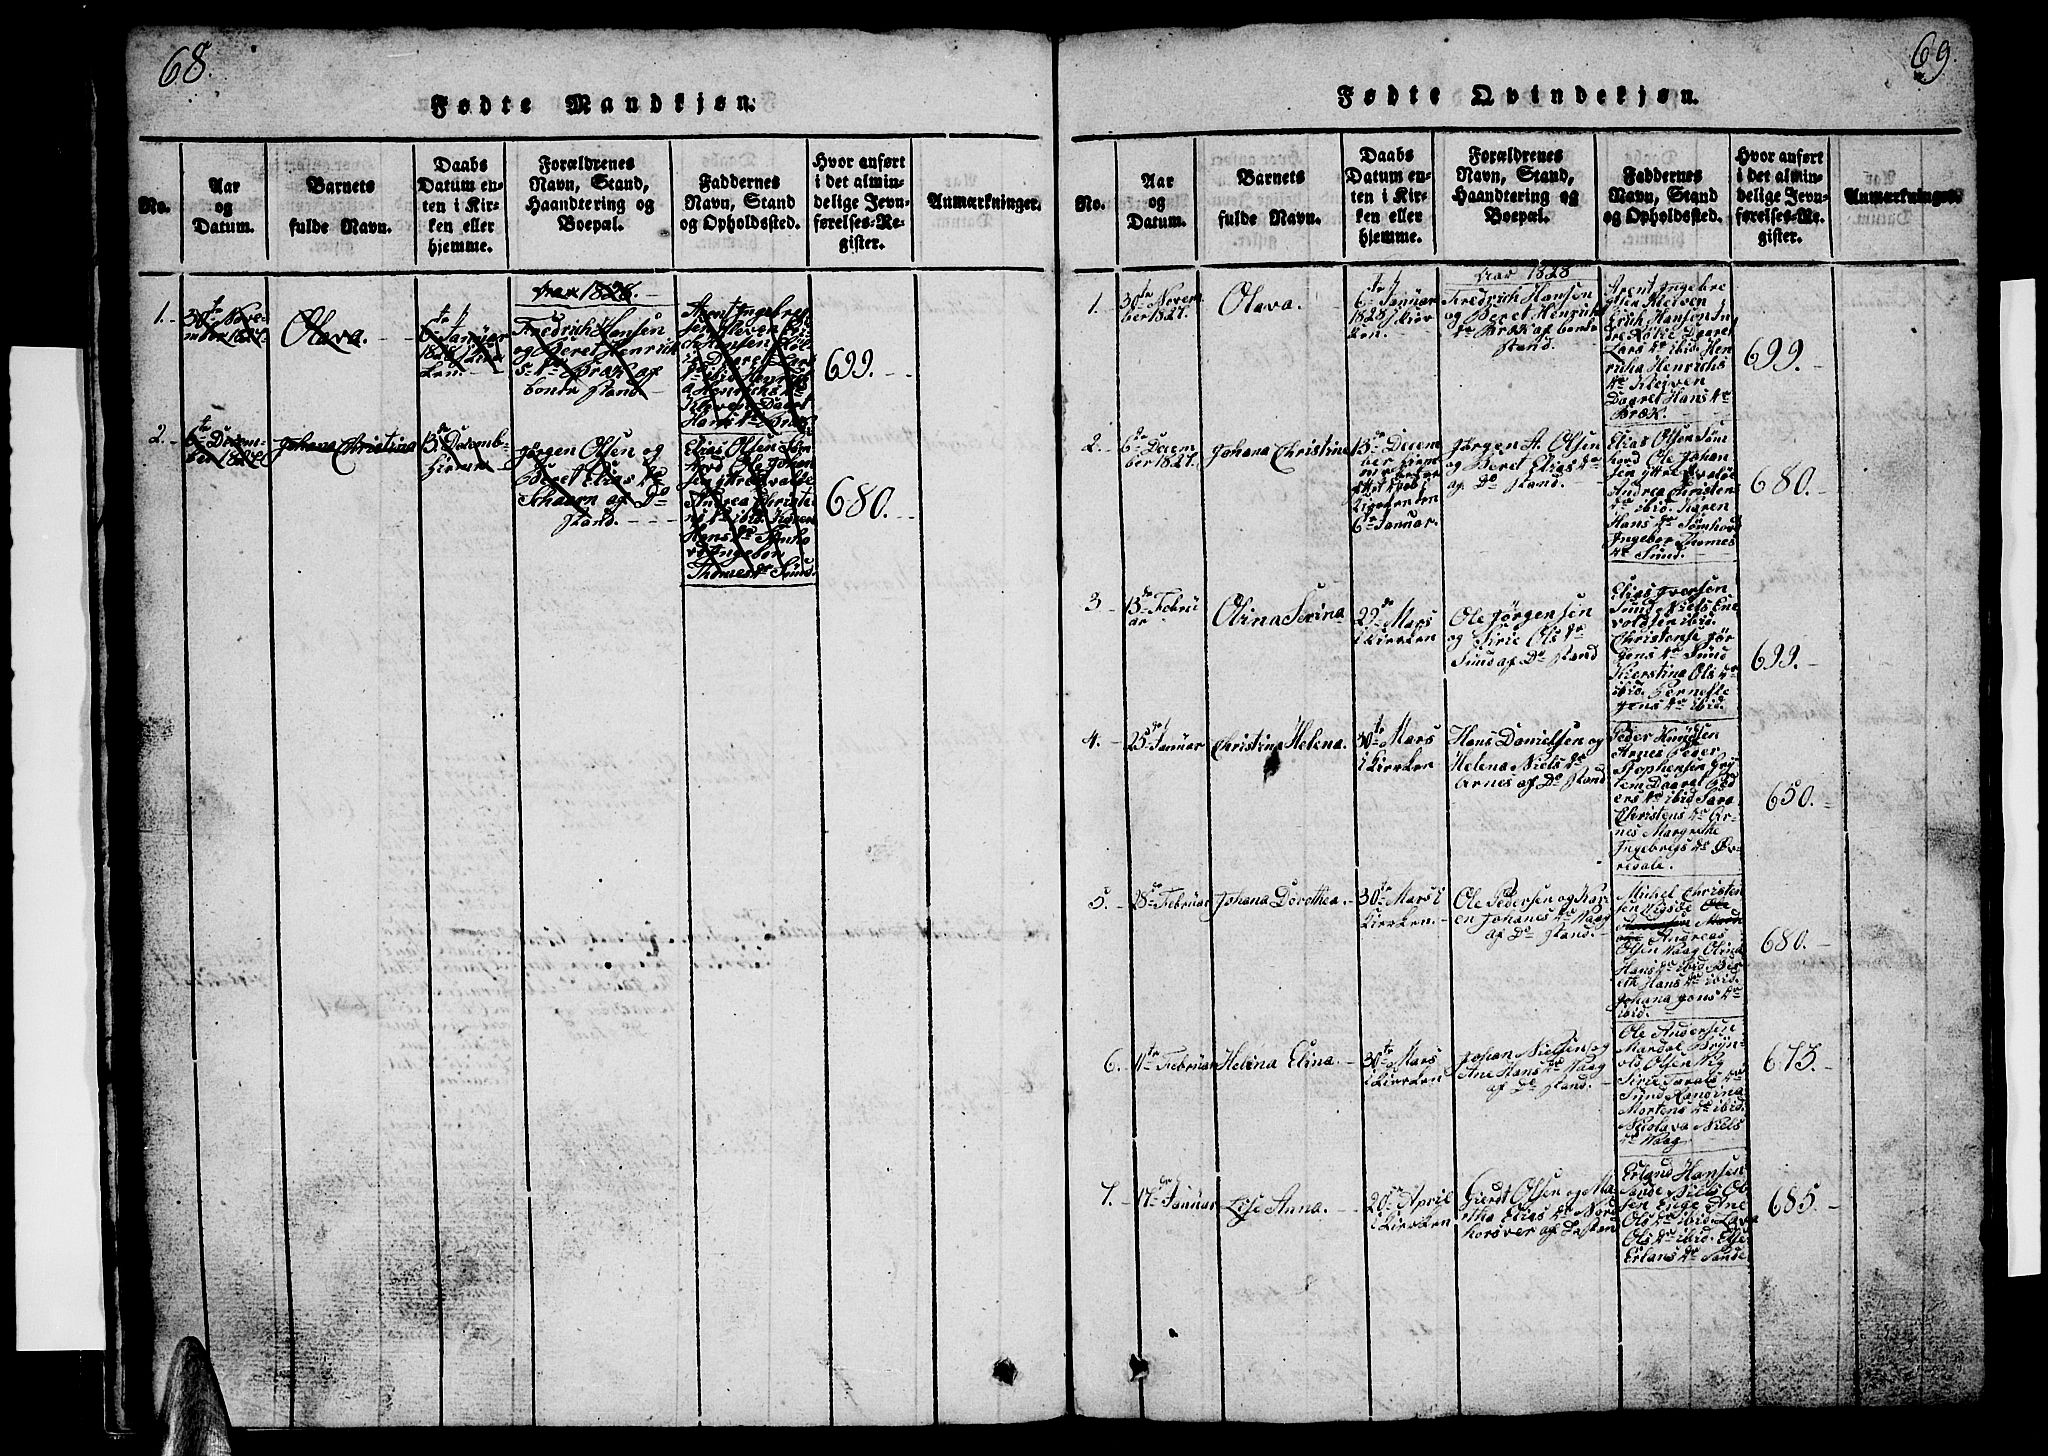 68.
Fødte Mandkjøn.
No.
Aar
og
Datum.
Barnets
fulde Navn.
Daabs
Datum en-
ten i Kir-
ken eller
hjemme.
Forældrenes
Navn, Stand,
Haandtering og
Boepæl.
Faddernes
Navn, Stand
og Opholdssted.
Hvor anført
i det almin-
delige Jevn-
førelses-Re-
gister.
Anmærkninger.
1.
30te Nove-
mber 1827.
Olava.
6te Januar
1828 i Kir-
ken.
Aar 1828.
Fredrich Hansen
og Beret Henrik
s dr Bræk af
bonde stand.
Arent Ingebre
Daaret
Hans dr Bræk
699.
2.
6te Decem-
ber 1827
Johana Christina
13de Decemb-
hiemme
Jørgen Olsen og
Beret Elias dr
af Do
stand.
Elias Olsen
Ole Johan
sen
Andrea Christe
ns dr ibid Karen
Hans dr
Ingebor
Thomes dr Sund.
680.
69.
Fødte Qvindekjøn.
No.
Aar
og
Datum.
Barnets
fulde Navn.
Daabs
Datum en-
ten i Kir-
ken eller
hjemme.
Forældrenes
Navn, Stand,
Haandtering og
Boepæl.
Faddernes
Navn, Stand
og Opholdssted.
Hvor anført
i det almin-
delige Jevn-
førelses-Re-
gister.
Anmærkninger.
Aar 1828
1.
30te Novem
ber 1827.
Olava.
6te Januar
1828 i Kier
ken.
Fredrich Hansen
og Beret Henriks
dr Bræk af bonde
stand.
Arent Ingebre
gtsen Kleiven
Erich Hansen In
dre Daaret
Lars dr ibid. Hen
richa Henrichs
dr Kleiven
Daaret Hans dr
Bræk.
699.
2.
6te Decem
ber 1827.
Johana Christine
13de Decem
ber hiem
i
Kirken den
6te Januar.
Jørgen A. Olsen
og Beret Elias dr
af Do stand.
Elias Olsen Søm
hovd Ole Johan
sen
Andrea Christens
dr ibid. Karen
Hans dr Sømhovd
Ingebor Thomes
dr Sund.
680.
3
13de Febru
ar
Olina Serina
29de Mars
i Kierken
Ole Jørgensen
og Sirie Ols dr
Sund af Do stand
Elias Iversen
Sund Niels Ene
voldsen ibid.
Christense Jør
gens dr Sund
Kierstina Ols dr
ibid. Pernelle
Jens dr ibid.
699.
4.
25de Januar
Christina Helena.
30te Mars
i Kierken
Hans Danielsen og
Helena Niels dr
Arnes af Do stand
Peder Knudsen
Arnes Peder
Stephensen Gry
tem Daaret Ped
ers dr ibid Sara
Christens dr Ar-
nes Margrethe
Ingebregs dr Øv-
redale.
650.
5.
28de Februar
Johana Dorothea.
30te Mars i
Kierken.
Ole Pedersen og Kar
en Johanes dr Haag
af Do stand.
Mikel Christen
sen
Andreas
Olsen Haag Olina
Hans dr ibid Ber
eth Hans dr ibid.
Johana Jons dr
ibid.
680.
6.
11te Februar
Helena Elina.
30te Mars
i Kierken
Johan Nielsen og
Ane Hans dr Haag
af Do stand.
Ole Andersen
Mardal Bryn-
ols Olsen Vig
Sirie Tarals dr
Randina
Mortens dr ibid.
Nicolava Niels
dr Haag
673.
7.
17de Januar
Lise Anna.
20de April
i Kierken
Giert Olsen og Ma-
rtha Elias dr Nord
horsver af Do stand
Erland Hansen
Sande Niels Ol-
sen Enge Ane
Ols dr ibid. Lava
Ols dr ibid. Else
Erlans dr Sande
685.